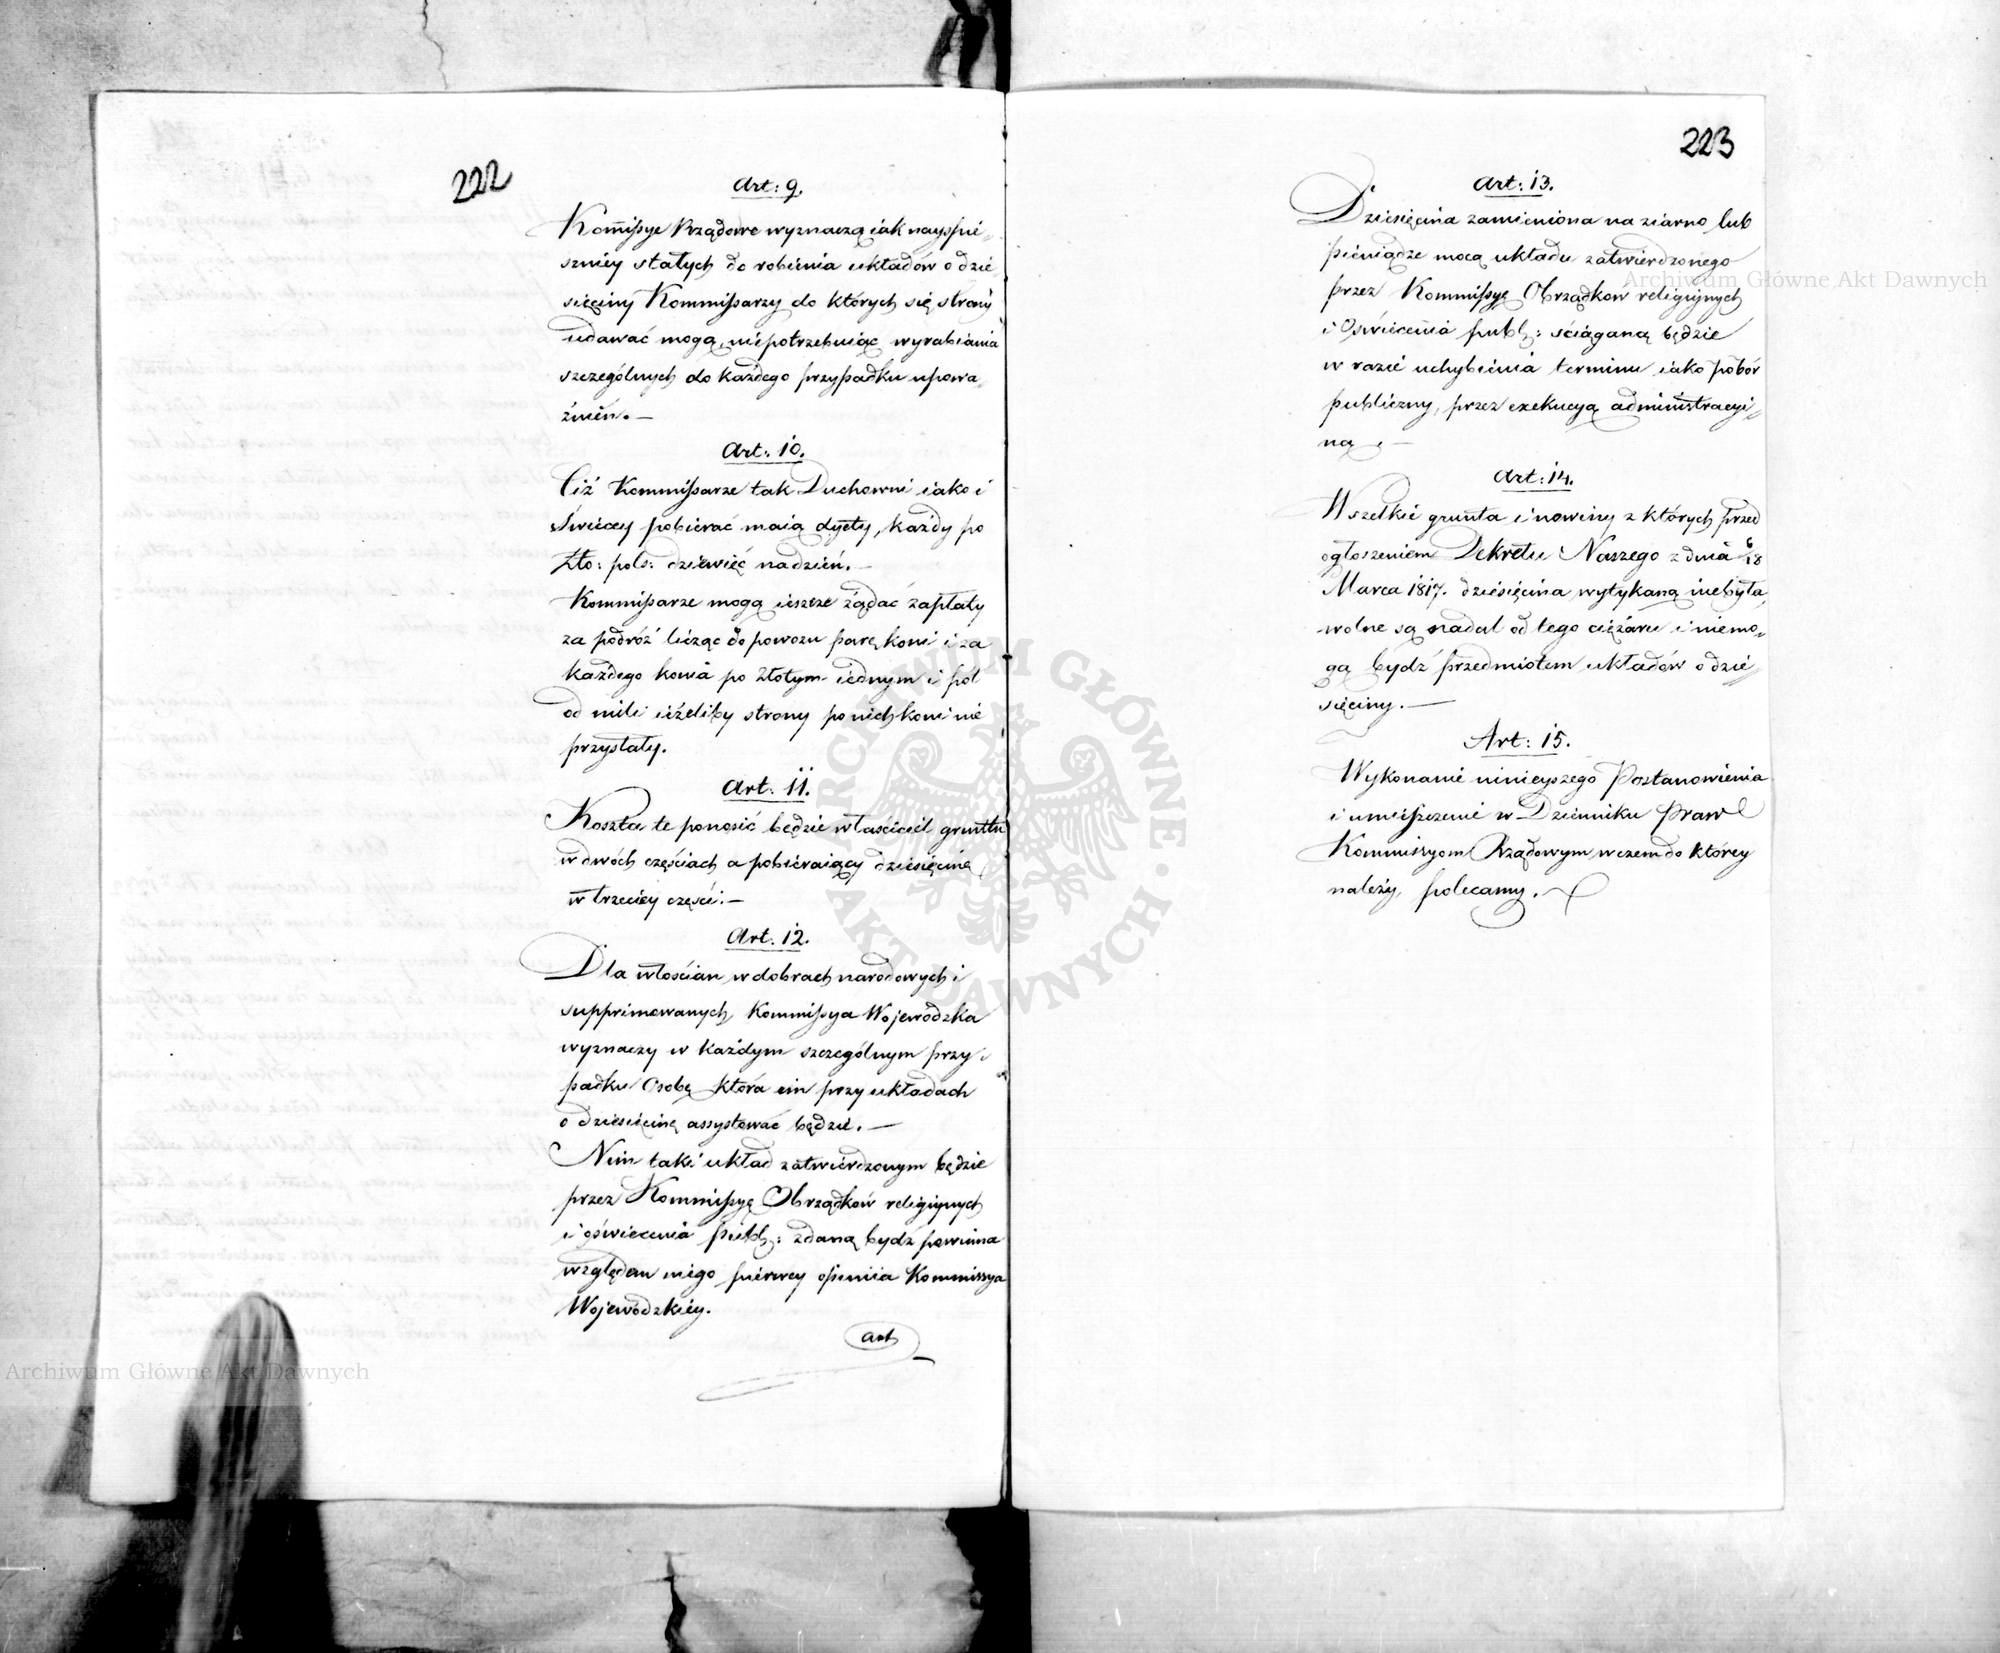 222
Art: 9.
Kommissye Rządowe wyznaczą iak nayspie„
szniey stałych do robienia układów o dzie
sięciny Kommissarzy do których się strony
udawać mogą, niepotrzebuiąc wyrabiania
szczególnych do każdego przypadku upowa„
żnień. —
Art: 10.
Ciż Kommissarze tak Duchowni iako i
Swieccy pobierać maią dyety, każdy po
Zło: pols: dziewięć na dzień. —
Kommissarze mogą ieszcze żądać zapłaty
za podróż licząc do powozu parę koni i za
każdego konia po złotym iednym i pół
od mili ieżeliby strony po nich koni nie
przysłały.
Art: 11.
Koszta te ponosić będzie właściciel gruntu
w dwóch częściach a pobieraiący dziesięcinę
w trzeciey części. —
Art: 12.
Dla włościan w dobrach narodowych i
supprimowanych Kommissya Wojewodzka
wyznaczy w każdym szczególnym przy„
padku Osobę która im przy układach
o dziesięcinę assystować będzie. —
Nim taki układ zatwierdzonym będzie
przez Kommissyę Obrządków religiynych
i oświecenia publ: zdaną bydź powinna
względem niego pierwey opiniia Kommissya
Wojewódzkiey.
Art
223
Art: 13.
Dziesięcina zamieniona na ziarno lub
pieniądze mocą układu zatwierdzonego
przez Kommissyę Obrządkow religiynych
i Oświecenia publ: sciąganą będzie
w razie uchybienia terminu iako pobór
publiczny, przez exekucyą administracyi„
ną. —
Art: 14.
Wszelkie grunta i nowiny z których przed
ogłoszeniem Dekretu Naszego z dnia 6/18
Marca 1817. dziesięcina wytykaną niebyła,
wolne są nadal od tego ciężaru i niemo„
gą bydź przedmiotem układów o dzie„
sięciny. —
Art: 15.
Wykonanie ninieyszego Postanowienia
i umieszczenie w Dzienniku Praw
Kommissyom Rządowym w czem do którey
należy, polecamy.
Archiwum Główne Akt Dawnych
Archiwum Główne Akt Dawnych
ARCHIWUM GŁÓWNE · AKT DAWNYCH ·